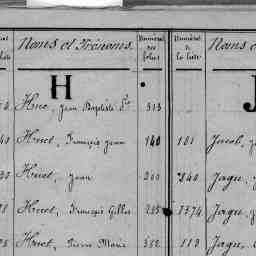 Noms et Prénoms. Numéros des folios Numéros de la liste Noms e
H J
Huc, Jean Baptiste 313
40 Huet, François Jean 140 101 Jacob, J
Huet, Jean 200 140 Jagu, J
Huet, François Gilles 255 1374 Jagu, J
Huet, Pierre Marie 352 113 Jagu,